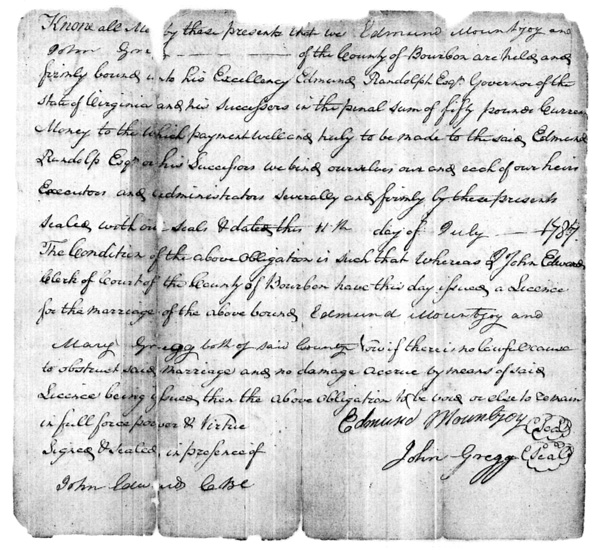 Know all Men by these presents that we Edmund Mountjoy and
John Gregg of the County of Bourbon are held and
firmly bound unto his Excellency Edmund Randolph Esqr. Governor of the
State of Virginia and his successors in the penal sum of fifty pounds Curren
Money to the which payment well and truly to be made to the said Edmund
Randolp Esqr. or his Successors we bind ourselves our and each of our heirs
Executors and administrators severally and firmly by these presents
sealed with our seals & dated this 11th day of July 1787.
The Condition of the above obligation is such that Whereas I John Edwards
Clerk of Court of the County of Bourbon have this day issued a Licence
for the marriage of the above bound Edmund Mountjoy and
Mary Gregg both of said County Now if there is no lawful cause
to obstruct said marriage and no damage accrue by means of said
Licence being issued then the above obligation to be void or else to remain
in full force power & Virtue
Edmund Mountjoy (Seal)
Signed & sealed in presence of
John Gregg (Seal)
John Edwards C B C